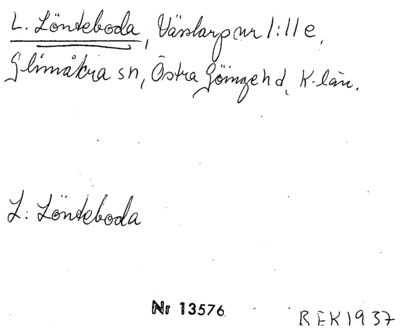 L. Lönteboda, Vänlarp nr 1:11 e,
Glimåkra sn, Östra Göinge hd, K-län.
L: Lönteboda
Nr 13576
REK 1937